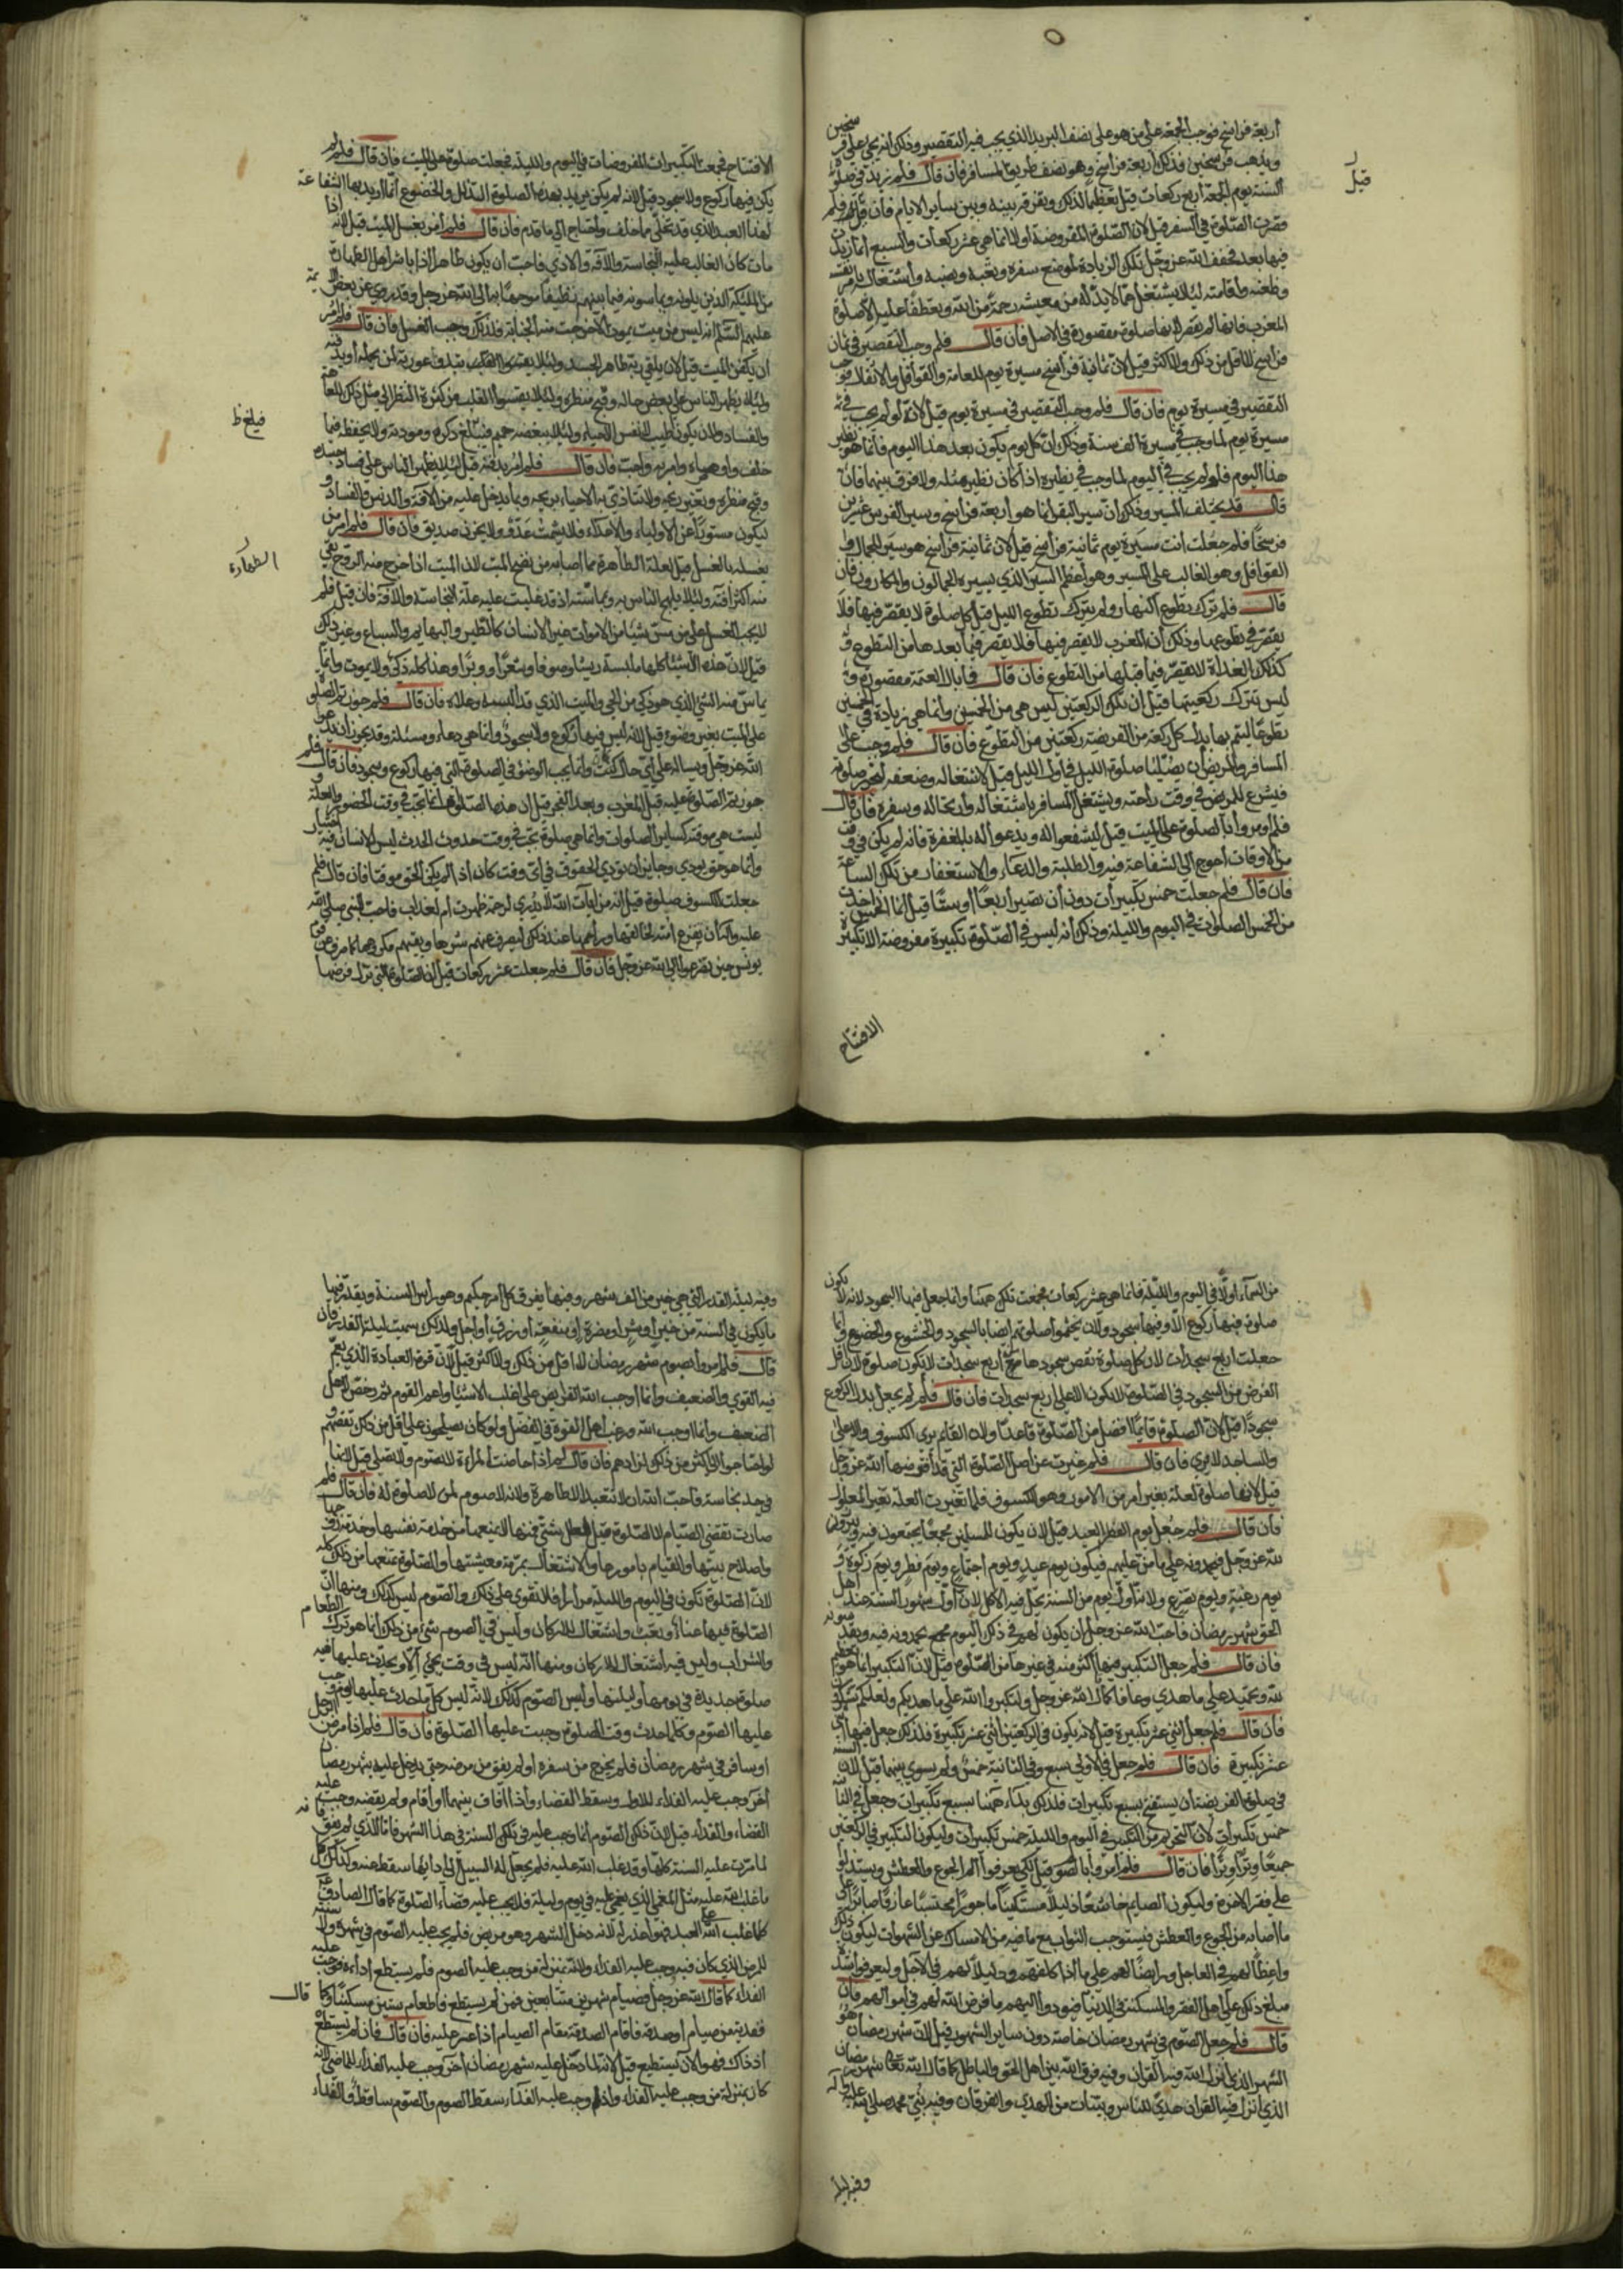 أربعة فراسخ فوجب الجمعة على من هو على نصف البريد الذي يجب فيه التقصير وذلك انه يجئ على فرسخين
ويذهب فرسخين فذلك أربعة فراسخ وهو نصف طريق المسافر فان قال فلم زيد في صلوة
السنة يوم الجمعة أربع ركعات قيل تعظيما لذلك وتفرقة بينه وبين ساير الايام فان قال فلم
قصرت الصلوة في السفر قيل لان الصلوة المفروضة أولا انما هي عشر ركعات والسبع انما زيدت
فيها بعد فخفف الله عز وجل تلك الزيادة لموضع سفره وتعبه ونصبه واشتغاله بامر نفسه
وظعنه واقامته لئلا يشتغل عما لابد له من معيشه رحمة من الله وتعطفا عليه الا صلوة
المغرب فانها لم تقصر لانها صلوة مقصورة في الاصل فان قال فلم وجب التقصير في ثمان
فراسخ لا اقل من ذلك ولا اكثر قيل لان ثمانية فراسخ مسيرة يوم للعامة والقوافل والاثقال فوجب
التقصير في مسيرة يوم فان قال فلم وجب التقصير في مسيرة يوم قيل لانه لو لم يجب في
مسيرة يوم لما وجب في مسيرة الف سنة وذلك ان كل يوم يكون بعد هذا اليوم فانما هو نظير
هذا اليوم فلو لم يجب في اليوم لما وجب في نظيره اذا كان نظيره مثله ولا فرق بينهما فان
قال قد يختلف المسير وذلك ان سير البقر انما هو أربعة فراسخ وسير الفرس عشرين
فرسخا فلم جعلت انت مسيرة يوم ثمانية فراسخ قيل لان ثمانية فراسخ هو سير الجمال و
القوافل وهو الغالب على المسير وهو أعظم السير الذي يسيره الجمالون والمكارون فان
قال فلم ترك تطوع النهار ولم يترك تطوع الليل قيل كل صلوة لا يقصر فيها فلا
يقصر في تطوعها وذلك ان المغرب لا يقصر فيها فلا يقصر فيما بعدها من التطوع و
كذلك الغداة لا يقصر فيما قبلها من التطوع فان قال فما بال العتمة مقصورة و
ليس تترك ركعتيها قيل ان تلك الركعتين ليس هي من الخمسين وانما هي زيادة في الخمسين
تطوعا ليتم بها بدل كل ركعة من الفريضة ركعتين من التطوع فان قال فلم وجب على
المسافر والمريض أن يصليا صلوة الليل في أول الليل قيل لاشتغاله وضعفه ليحرز صلوته
فيشرع للمريض في وقت راحته ويشتغل المسافر باشتغاله وارتحاله وسفره فان قال
فلم أمروا بالصلوة على الميت قيل ليشفعوا له ويدعوا له بالمغفرة فانه لم يكن في وقت
من الاوقات أحوج الى الشفاعة فيه والطلبة والدعاء والاستغفار من تلك الساعة
فان قال فلم جعلت خمس تكبيرات دون أن تصير أربعا أو ستا قيل انما الخمس أخذت
من الخمس الصلوات في اليوم والليلة وذلك انه ليس في الصلوة تكبيرة مفروضة الا تكبيرة
الافتتاح
قيل
الافتتاح فجمعت التكبيرات المفروضات في اليوم والليلة فجعلت صلوة على الميت فان قال فلم لم
يكن فيها ركوع ولا سجود قيل لانه لم يكن يريد بهذه الصلوة التذلل والخضوع انما اريد بها الشفاعة
لهذا العبد الذي قد تخلى مما خلف واحتاج الى ما قدم فان قال فلم أمر بغسل الميت قيل لانه اذا
مات كان الغالب عليه النجاسة والآفة والاذى فأحب أن يكون طاهرا اذا باشر اهل الطهارة
من الملئكة الذين يلونه ويماسونه فيما بينهم نظيفا موجها به الى الله عز وجل وقد روي عن بعض الائمة
عليهم السلام انه ليس من ميت يموت الا خرجت منه الجنابة فلذلك وجب الغسل فان قال فلم أمر
أن يكفن الميت قيل لان يلقى ربه طاهر الجسد ولئلا تبدو عورته لمن يحمله أو يدفنه
ولئلا يظهر الناس على بعض حاله وقبح منظره ولئلا يقسوا القلب من كثرة النظر الى مثل ذلك للعاهة
والفساد ولان يكون أطيب لانفس الاحياء ولئلا يبغضه حميم فيلغ ذكره ومودته ولا يحفظه فيما
خلف وأوصاه وامر به واحب فان قال فلم أمر بدفنه قيل لئلا يظهر الناس على فساد جسده
وقبح منظره وتغير ريحه ولا يتأذى به الاحياء بريحه وبما يدخل عليه من الآفة والدنس والفساد و
ليكون مستورا عن الاولياء والاعداء فلا يشمت عدو ولا يحزن صديق فان قال فلم أمر من
يغسله بالغسل قيل لعلة الطهارة مما أصابه من نضح الميت لان الميت اذا خرج منه الروح بقي
منه أكثر آفته ولئلا يلهج الناس به وبمماسته اذ قد غلبت عليه علة النجاسة والآفة فان قيل فلم
لا يجب الغسل على من مس شيئا من الاموات غير الانسان كالطير والبهايم والسباع وغير ذلك
قيل لان هذه الاشياء كلها ملبسة ريشا وصوفا وشعرا ووبرا وهذا كله ذكي ولا يموت وانما
يماس منه الشئ الذي هو ذكي من الحي والميت الذي قد البسه وعلاه فان قال فلم جوزتم الصلوة
على الميت بغير وضوء قيل لانه ليس فيها ركوع ولا سجود وانما هي دعاء ومسئلة وقد يجوز أن تدعو
الله عز وجل وتساله على أي حال كنت وانما يجب الوضوء في الصلوة التي فيها ركوع وسجود فان قال فلم
جوزتم الصلوة عليه قبل المغرب وبعد الفجر قيل ان هذه الصلوة انما تجب في وقت الحضور والعلة و
ليست هي موقتة كساير الصلوات وانما هي صلوة تجب في وقت حدوث الحدث ليس للانسان فيه اختيار
وانما هو حق يؤدى وجايز أن تؤدى الحقوق في أي وقت كان اذا لم يكن الحق موقتا فان قال فلم
جعلت للكسوف صلوة قيل لانه من آيات الله لا يدرى لرحمة ظهرت أم لعذاب فأحب النبي صلى الله
عليه وآله أن يفزع أمته لخالقها وراحمها عند ذلك ليصرف عنهم شرها ويقيهم مكروهها كما صرف عن قوم
يونس حين تضرعوا الى الله عز وجل فان قال فلم جعلت عشر ركعات قيل لان الصلوة التي نزل فرضها
فيلغ ظ
الطهارة
من السماء أولا في اليوم والليلة فانما هي عشر ركعات فجمعت تلك ههنا وانما جعل فيها السجود لانه لا يكون
صلوة فيها ركوع الا وفيها سجود ولان يختموا صلوتهم ايضا بالسجود والخشوع والخضوع وانما
جعلت اربع سجدات لان كل صلوة نقص سجودها من أربع سجدات لا تكون صلوة لان اقل
الفرض من السجود في الصلوة لا يكون الا على اربع سجدات فان قال فلم لم يجعل بدل الركوع
سجودا قيل لان الصلوة قائما افضل من الصلوة قاعدا ولان القائم يرى الكسوف والاعلى
والساجد لا يرى فان قال فلم غيرت عن اصل الصلوة التي قد افترضها الله عز وجل
قيل لانها صلوة لعلة بغير أمر من الامور وهو الكسوف فلما تغيرت العلة تغير المعلول
فان قال فلم جعل يوم الفطر العيد قيل لان يكون للمسلمين مجمعا يجتمعون فيه ويبرزون
لله عز وجل فيحمدونه على ما من عليهم فيكون يوم عيد ويوم اجتماع ويوم فطر ويوم زكوة و
يوم رغبة ويوم تضرع ولانه أول يوم من السنة يحل فيه الاكل لان أول شهور السنة عند اهل
الحق شهر رمضان فأحب الله عز وجل أن يكون لهم في ذلك اليوم مجمع يحمدونه فيه ويقدسونه
فان قال فلم جعل التكبير فيها أكثر منه في غيرها من الصلوة قيل لان التكبير انما هو تعظيم
لله وتحميد على ما هدى وعافا كما قال الله عز وجل ولتكبروا الله على ما هديكم ولعلكم تشكرون
فان قال فلم جعل اثنى عشر تكبيرة قيل لانه يكون في الركعتين اثنى عشر تكبيرة فلذلك جعل فيها اثنى
عشر تكبيرة فان قال فلم جعل في الاولى سبع وفي الثانية خمس ولم يسوى بينهما قيل لان السنة
في صلوة الفريضة أن يستفتح بسبع تكبيرات فلذلك بدأ ههنا بسبع تكبيرات وجعل في الثانية
خمس تكبيرات لان التحريم من التكبير في اليوم والليلة خمس تكبيرات وليكون التكبير في الركعتين
جميعا وترا وترا فان قال فلم أمروا بالصوم قيل لكي يعرفوا الم الجوع والعطش ويستدلوا
على فقر الآخرة وليكون الصائم خاشعا ذليلا مستكينا ماجورا محتسبا عارفا صابرا على
ما اصابه من الجوع والعطش فيستوجب الثواب مع ما فيه من الامساك عن الشهوات ليكون ذلك
واعظا لهم في العاجل ورايضا لهم على اداء ما كلفهم ودليلا لهم في الآجل وليعرفوا شدة
مبلغ ذلك على أهل الفقر والمسكنة في الدنيا فيؤدوا اليهم ما فرض الله لهم في أموالهم فان
قال فلم جعل الصوم في شهر رمضان خاصة دون ساير الشهور قيل لان شهر رمضان هو
الشهر الذي أنزل الله فيه القرآن وفيه فرق الله بين اهل الحق والباطل كما قال الله تعالى شهر رمضان
الذي أنزل فيه القرآن هدى للناس وبينات من الهدى والفرقان وفيه نبئ محمد صلى الله عليه وآله
وفيه ليلة
وفيه ليلة القدر التي هي خير من الف شهر وفيها يفرق كل أمر حكيم وهو رأس السنة ويقدر فيها
ما يكون في السنة من خير أو شر أو مضرة أو منفعة أو رزق أو أجل ولذلك سميت ليلة القدر فان
قال فلم أمروا بصوم شهر رمضان لا اقل من ذلك ولا اكثر قيل لان قوة العبادة الذي يعم
فيه القوى والضعيف وانما أوجب الله الفرايض على اغلب الاشياء وأعم القوم ثم رخص لاهل
الضعيف وانما اوجب الله ورغب أهل القوة في الفضل ولو كان يصلحون على اقل من ذلك لنقصهم و
لو احتاجوا الى اكثر من ذلك لزادهم فان قال فلم اذا حاضت المرأة لا تصوم ولا تصلي قيل لانها
في حد نجاسة فأحب الله ان لا تتعبد الا طاهرة ولانه لا صوم لمن لا صلوة له فان قال فلم
صارت تقضى الصيام لا الصلوة قيل لعلل شتى فمنها لا يمنعها من خدمة نفسها وخدمة زوجها
واصلاح بيتها والقيام بامورها والاشتغال بمرمة معيشتها والصلوة تمنعها من ذلك كله
لان الصلوة تكون في اليوم والليلة مرارا فلا تقوى على ذلك والصوم ليس كذلك ومنها ان
الصلوة فيها عناء وتعب واشتغال الاركان وليس في الصوم شئ من ذلك انما هو ترك الطعام
والشراب وليس فيه اشتغال الاركان ومنها انه ليس في وقت يجئ الا ويحدث عليها فيه
صلوة جديدة في يومها وليلتها وليس الصوم كذلك لانه ليس كل ما حدث عليها يوم وجب
عليها الصوم وكلما حدث وقت الصلوة وجبت عليها الصلوة فان قال فلم اذا مرض الرجل
او سافر في شهر رمضان فلم يخرج من سفره او لم يفق من مرضه حتى يدخل عليه شهر رمضان
آخر وجب عليه الفداء للاول وسقط القضاء واذا افاق بينهما أو أقام ولم يقضه وجب عليه
القضاء والفداء قيل لان ذلك الصوم انما وجب عليه في تلك السنة في هذا الشهر فاما الذي لم يفق فانه
لما مرت عليه السنة كلها وقد غلب الله عليه فلم يجعل له السبيل الى ادائها سقط عنه وكذلك كل
ما غلب الله عليه مثل المغمى الذي يغمى عليه في يوم وليلة فلا يجب عليه قضاء الصلوة كما قال الصادق ع
كلما غلب الله على العبد فهو اعذر له لانه دخل الشهر وهو مريض فلم يجب عليه الصوم في شهره ولا سنته
للمرض الذي كان فيه ووجب عليه الفداء ولانه بمنزلة من وجب عليه الصوم فلم يستطع أداءه فوجب عليه
الفداء كما قال الله عز وجل فصيام شهرين متتابعين فمن لم يستطع فاطعام ستين مسكينا وكما قال
ففدية من صيام أو صدقة فاقام الصدقة مقام الصيام اذا عسر عليه فان قال فان لم يستطع
اذ ذاك فهو الآن يستطيع قيل لانه لما دخل عليه شهر رمضان آخر وجب عليه الفداء للماضي لانه
كان بمنزلة من وجب عليه الفداء واذا وجب عليه الفداء سقط الصوم والصوم ساقط والفداء